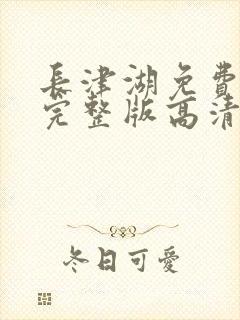 長津湖免費
完整版高清
冬日可愛